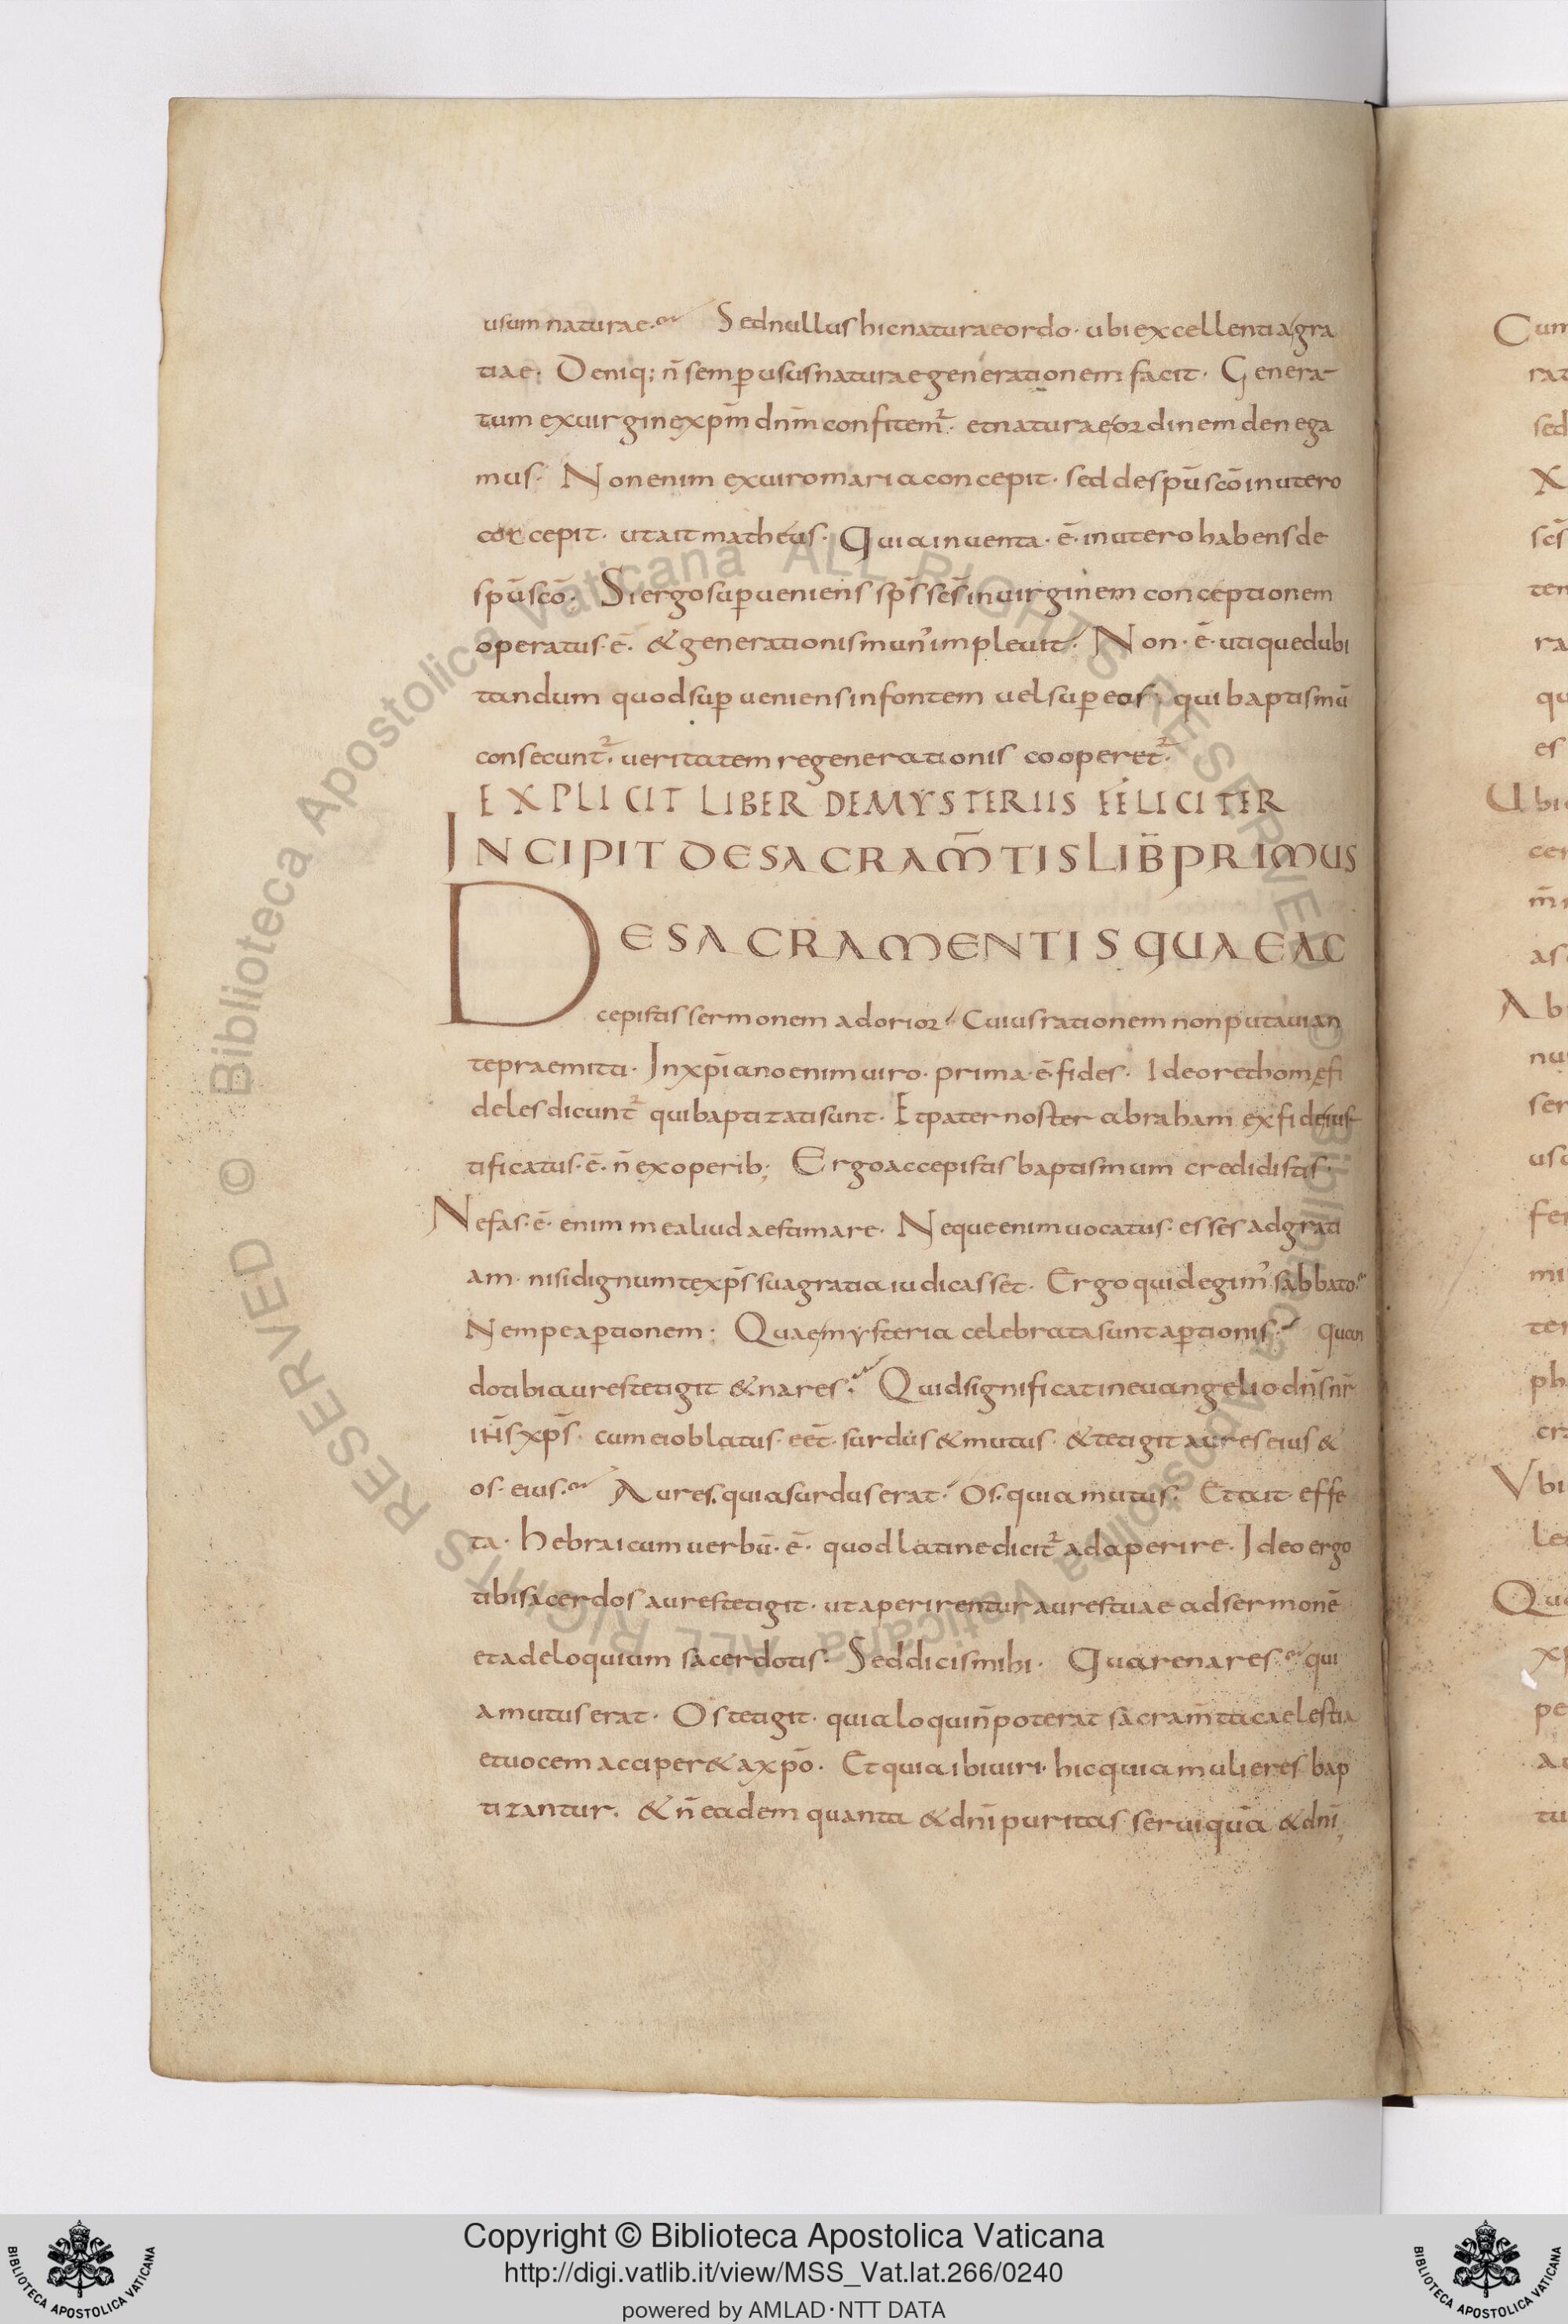 usum naturae. Sed nullus hic naturae ordo · ubi excellentia gra
tiae · Deniq; n̄ semp̄ usus naturae generationem facit · Genera
tum ex virgine xp̄m dn̄m confitem̄ · et naturae ordinem denega
mus · Non enim ex viro maria concepit · sed de sp̄u sc̄o in utero
concepit · ut ait matheus · Quia inventa · ē · in utero habens de
sp̄u sc̄o · Si ergo sup̄veniens sp̄s sc̄s in virginem conceptionem
operatus · ē · & generationis mun' implevit · Non · ē · utique dubi
tandum quod sup̄veniens in fontem vel sup̄ eos · qui baptismū
consecunt̄ · veritatem regenerationis cooperet̄ ·
EXPLICIT LIBER DE MYSTERIIS FELICITER
INCIPIT DE SACRAM̄TIS LIB̄ PRIMUS
DE SACRAMENTIS QUAE AC
cepistis sermonem adorior · Cuius rationem non putavi an
te praemitti · In xp̄iano enim viro · prima · ē · fides · Ideo
deles dicunt̄ qui baptizati sunt · Et pater noster abraham ex fide ius
tificatus · ē · n̄ ex operib; Ergo accepistis baptismum credidistis ·
Nefas · ē · enim me aliud aestimare · Neque enim vocatus · esses ad grati
am · nisi dignum te xp̄s sua gratia iudicasset · Ergo quid egim' sabbato ·
Nempe ap̄tionem · Quae mysteria celebrata sunt ap̄tionis · quan
do tibi aures tetigit & nares · Quid significat in evangelio dn̄s nr̄
ih̄s xp̄s · cum ei oblatus · eēt · surdus & mutus · & tetigit aures eius &
os · eius · Aures · quia surdus erat · Os · quia mutus · Et ait effe
ta · hebraicum verbū · ē · quod latine dicit̄ adaperire · Ideo ergo
tibi sacerdos aures tetigit · ut aperirentur aures tuae ad sermonē
et ad eloquium sacerdotis · Sed dicis mihi · Quare nares · qui
a mutus erat · Os tetigit · quia loqui n̄ poterat sacram̄ta caelestia
et vocem acciper& a xp̄o · Et quia ibi viri · hic quia mulieres bap
tizantur · & n̄ eadem quanta & dn̄i puritas servi quā & dn̄i
Copyright © Biblioteca Apostolica Vaticana
http://digi.vatlib.it/view/MSS_Vat.lat.266/0240
powered by AMLAD·NTT DATA